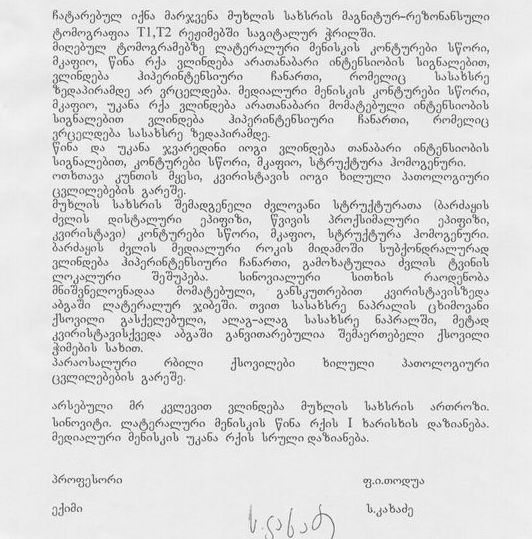 ჩატარებულ იქნა მარჯვენა მუხლის სახსრის მაგნიტურ-რეზონანსული
ტომოგრაფია T1,T2 რეჟიმებში საგიტალურ ჭრილში.
მიღებულ ტომოგრამებზე ლატერალური მენისკის კონტურები სწორი,
მკაფიო, წინა რქა ვლინდება არათანაბარი ინტენსიობის სიგნალებით,
ვლინდება ჰიპერინტენსიური ჩანართი, რომელიც სასახსრე
ზედაპირამდე არ ვრცელდება. მედიალური მენისკის კონტურები სწორი,
მკაფიო, უკანა რქა ვლინდება არათანაბარი მომატებული ინტენსიობის
სიგნალებით ვლინდება ჰიპერინტენსიური ჩანართი, რომელიც
ვრცელდება სასახსრე ზედაპირამდე.
წინა და უკანა ჯვარედინი იოგი ვლინდება თანაბარი ინტენსიობის
სიგნალებით, კონტურები სწორი, მკაფიო, სტრუქტურა ჰომოგენური.
ოთხთავა კუნთის მყესი, კვირისტავის იოგი ხილული პათოლოგიური
ცვლილებების გარეშე.
მუხლის სახსრის შემადგენელი ძვლოვანი სტრუქტურათა (ბარძაყის
ძვლის დისტალური ეპიფიზი, წვივის პროქსიმალური ეპიფიზი,
კვირისტავი) კონტურები სწორი, მკაფიო, სტრუქტურა ჰომოგენური.
ბარძაყის ძვლის მედიალური როკის მიდამოში სუბქონდრალურად
ვლინდება ჰიპერინტენსიური ჩანართი, გამოხატულია ძვლის ტვინის
ლოკალური შეშუპება. სინოვიალური სითხის რაოდენობა
მნიშვნელოვნადაა მომატებული, განსკუთრებით კვირისტავისზედა
აბგაში ლატერალურ ჯიბეში. თვით სასახსრე ნაპრალის ცხიმოვანი
ქსოვილი გასქელებული, ალაგ-ალაგ სასახსრე ნაპრალში, მეტად
კვირისტავისქვედა აბგაში განვითარებულია შემაერთებელი ქსოვილი
ჭიმების სახით.
პარაოსალური რბილი ქსოვილები ხილული პათოლოგიური
ცვლილებების გარეშე.
არსებული მრ კვლევით ვლინდება მუხლის სახსრის ართროზი.
სინოვიტი. ლატერალური მენისკის წინა რქის I ხარისხის დაზიანება.
მედიალური მენისკის უკანა რქის სრული დაზიანება.
პროფესორი ფ.ი.თოდუა
ექიმი ს.კახაძე